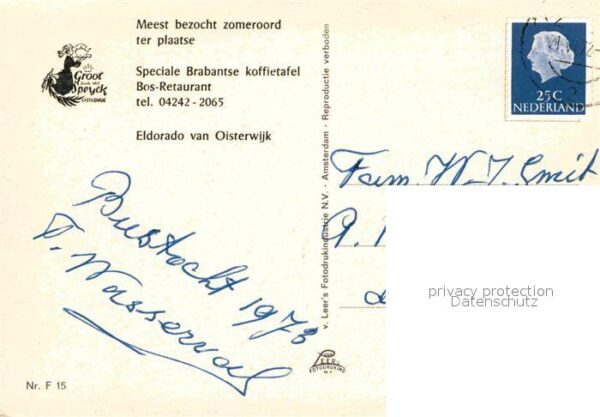 Meest bezocht zomeroord
ter plaatse
Groot
Speyck
Speciale Brabantse koffietafel
Bos-Retaurant
tel. 04242 - 2065
Eldorado van Oisterwijk
25 C
NEDERLAND
v. Leer's Fotodrukindustrie N.V. - Amsterdam - Reproductie verboden
Fam W. J. Smit
Bustocht 1973
privacy protection
Datenschutz
VAN
LEER'S
FOTODRUKIND
N.V.
Nr. F 15